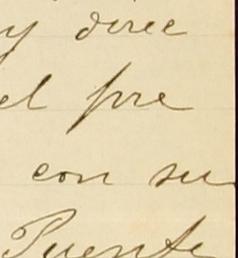 y dice
el pre
con su
Puente